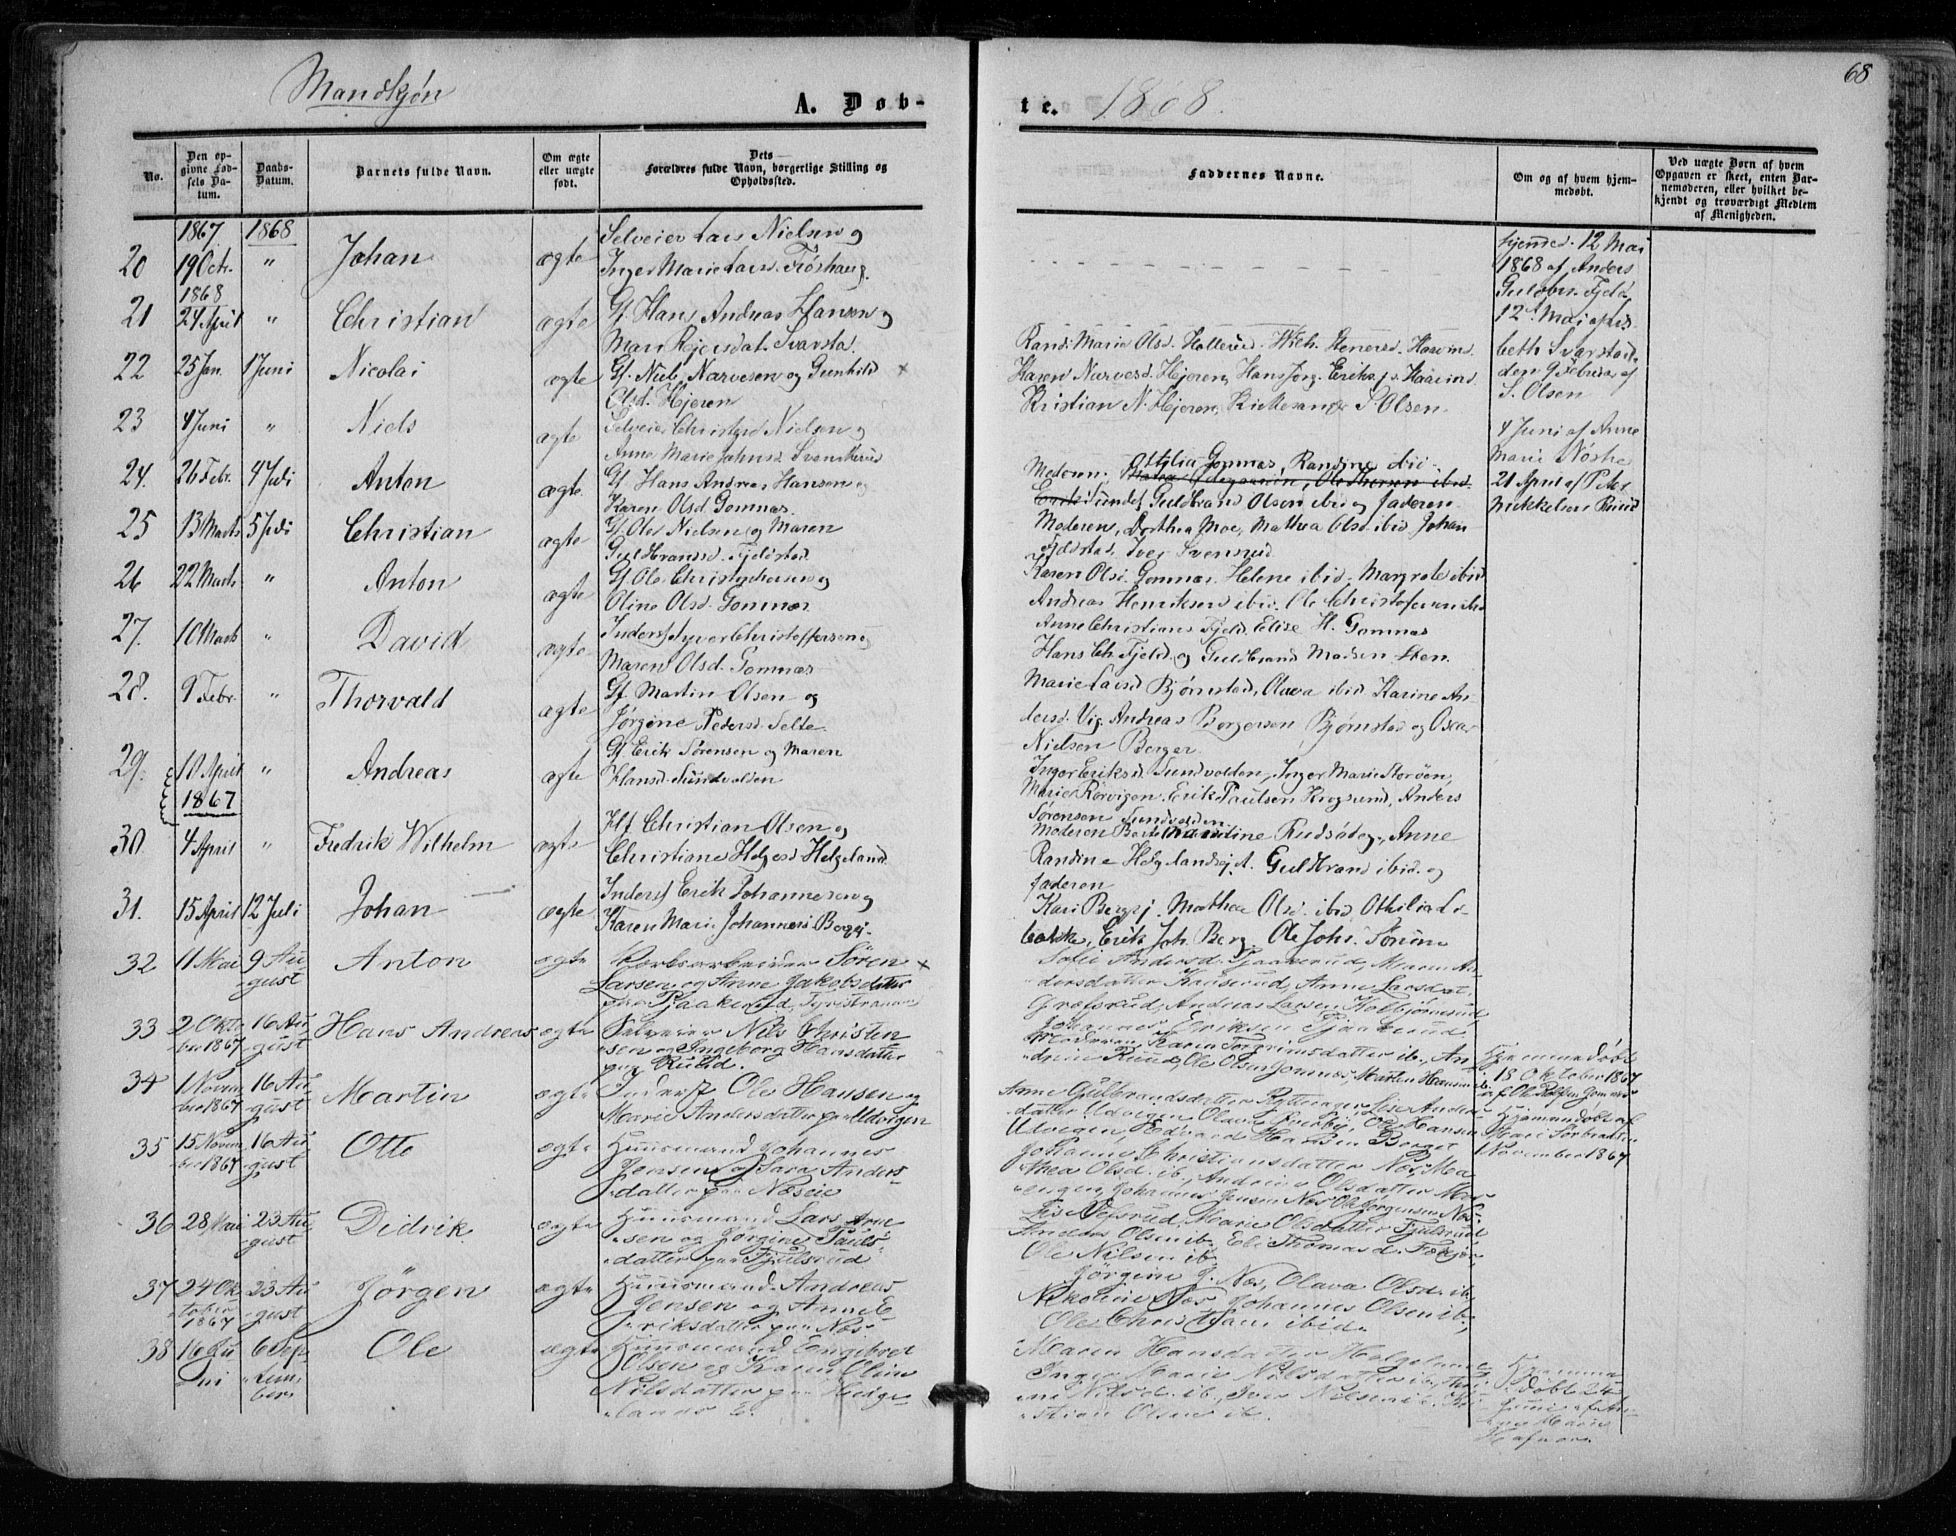 Mandkjøn
A. Døb-
te.
1868.
68
No.
Den op-
givne Fød-
sels Da-
tum.
Daabs-
Datum.
Barnets fulde Navn.
Om ægte
eller uægte
født.
Dets
Forældres fulde Navn, borgerlige Stilling og
Opholdssted.
Faddernes Navne.
Om og af hvem hjem-
medøbt.
Ved uægte Børn af hvem
Opgaven er skeet, enten Bar-
nemoderen, eller hvilket be-
kjendt og troværdigt Medlem
af Menigheden.
1867 1868
20 19 Octr. " Johan ægte
Selveier Lars Nielsen og
Inger Marie Larsd. Frøshaug.
hjemmed. 12 Mai
1868 af Anders
Guldbr. Fjeld
1868
21 24 April " Christian ægte
Gf. Hans Andreas Hansen og
Mari Svarstad.
12 Mai af
beth Svarstad.
22 25 Jan. 1 Juni Nicolai ægte
Gf. Niels Narvesen og Gunhild ×
Olsd. Hjeren
Rand. Marie Olsd. Hollerud,
Karen Narvesd. Hjeren, Hans Jørg. Eriks.
Kristian N. Hjeren, S. Olsen.
den 9 Februar af
S. Olsen
23 4 Juni " Niels ægte
Selveier Christopher Nielsen og
Anne Marie Johnsd. Svenskerud
4 Juni af Anne
Marie
24. 26 Febr. 4 Juli Anton ægte
Gf. Hans Andreas Hansen og
Karen Olsd. Gomnæs.
Moderen, Othilia Gomnæs, Randine ibid.
Guldbrand Olsen ibid og faderen.
21 April af Peter
Mikkelsen Ruud
25 13 Marts 5 Juli Christian ægte
Gf. Ole Nielsen og Maren
Guldbrandsd. Fjeldstad
Moderen, Dorthea Moe, Mathea Olsd. ibid, Johan
Fjeldstad, Iver Svensrud
26 22 Marts " Anton ægte
Gf. Ole Christophersen og
Oline Olsd. Gomnæs
Karen Olsd. Gomnæs, Helene ibid, Margrete ibid
Andreas Henriksen ibid. Ole Christofersen ibid
27. 10 Marts " David ægte
Inderst Syver Christoffersen og
Maren Olsd. Gomnæs
Anne Christians. Fjeld, Elise H. Gomnæs
Hans Ch. Fjeld og Guldbrand Madsen Steen.
28. 9 Febr. " Thorvald ægte
Gf. Martin Olsen og
Jørgine Pedersd. Selte
Marie Larsd. Bjørnstad, Olava ibid, Karine An-
dersd. Vig, Andreas Borgersen Bjørnstad og Oscar
Nielsen Berger.
29. 10 April " Andreas ægte
1867
Gf. Erik Sørensen og Maren
Hansd. Sundvolden
Inger Eriksd. Sundvolden, Inger Marie Storøen,
Marie Rørvigen, Erik Paulsen Krogsrud, Anders
Sørensen Sundvolden.
30 4 April " Fredrik Wilhelm ægte
Hf. Christian Olsen og
Christiane Helgesd. Helgeland.
Moderen Berte Martine Rudsødeg., Anne
Randine Helgelandsej., Guldbrand ibid. og
faderen
31. 15 April 12 Juli Johan ægte
Inderst Erik Johannesen og
Karen Marie Johannesd. Bergsj.
Kari Bergsj. Mathea Olsd. ibid, Othilia Li-
Erik Joh. Berg. Ole Johs. Sørum
32 11 Mai 9 Au-
gust
Anton ægte
Søren ×
Larsen og Anne Jakobsdatter
paa Pjaakerud, Tyristranden
Sofie Andersd. Pjaakerud, Maren An-
dersdatter Kauserud, Anne Larsdat.
Græfsrud, Andreas Larsen Kolbjørnsrud,
Johannes Eriksen Pjaakerud
33 2 Okto-
ber 1867
16 Au-
gust
Hans Andreas ægte
Selveier Nils Christen-
sen og Ingeborg Hansdatter
paa Ruud.
Moderen, Karen Torgrimsdatter ib., An-
drea Ruud, Ole Olsen Gomnæs, Morten Hansen ib.
Hjemmedøbt
18 Oktober 1867
af Ole Gomnæs
34 1 Novem-
ber 1867
16 Au-
gust
Martin ægte
Inderst Ole Hansen og
Marie Andersdatter paa Udvigen
Anne Gulbrandsdatter Rytterager, Lise Anders-
datter Udvigen, Olava Sverby, Ole Hansen
Udvigen, Edvard Hansen Berget
Hjemmedøbt af
Mari Sørbraaten
November 1867
35 15 Novem-
ber 1867
16 Au-
gust
Otto ægte
Huusmand Johannes
Jensen og Sara Anders-
datter paa Næseie
Johanne Christiansdatter Næs, Ma-
thea Olsd. ib., Andrine Olsdatter Mor-
engen, Johannes Jensen Næs, Ole Jørgensen Næs
36 28 Mai 23 Au-
gust
Didrik ægte
Huusmand Lars Arne-
sen og Jørgine Pauls-
datter paa Fjulsrud
Lise Vefsrud, Marie Olsdatter Fjulsrud
Anders Olsen ib. Eli Thomasd.
Ole Nilsen ib.
37 24 Ok-
tober
1867
23 Au-
gust
Jørgen ægte
Huusmand Andreas
Jensen og Anne E-
riksdatter paa Næs.
Jørgine J. Næs, Olava Olsd. ib.
Nikoline Næs, Johannes Olsen ib.,
Ole Christian ibid.
38 16 Ju-
ni
6 Sep-
tem-
ber
Ole ægte
Huusmand Engebret
Olsen og Karen Oline
Nilsdatter paa Helge-
lands E.
Maren Hansdatter Helgeland
Inger Marie Nilsdatter ib.,
Nilsd. ib., Iver Nilsen ib., Kri-
stian Olsen ib.
Hjemme-
døbt 24
Juni af An-
ne Marie